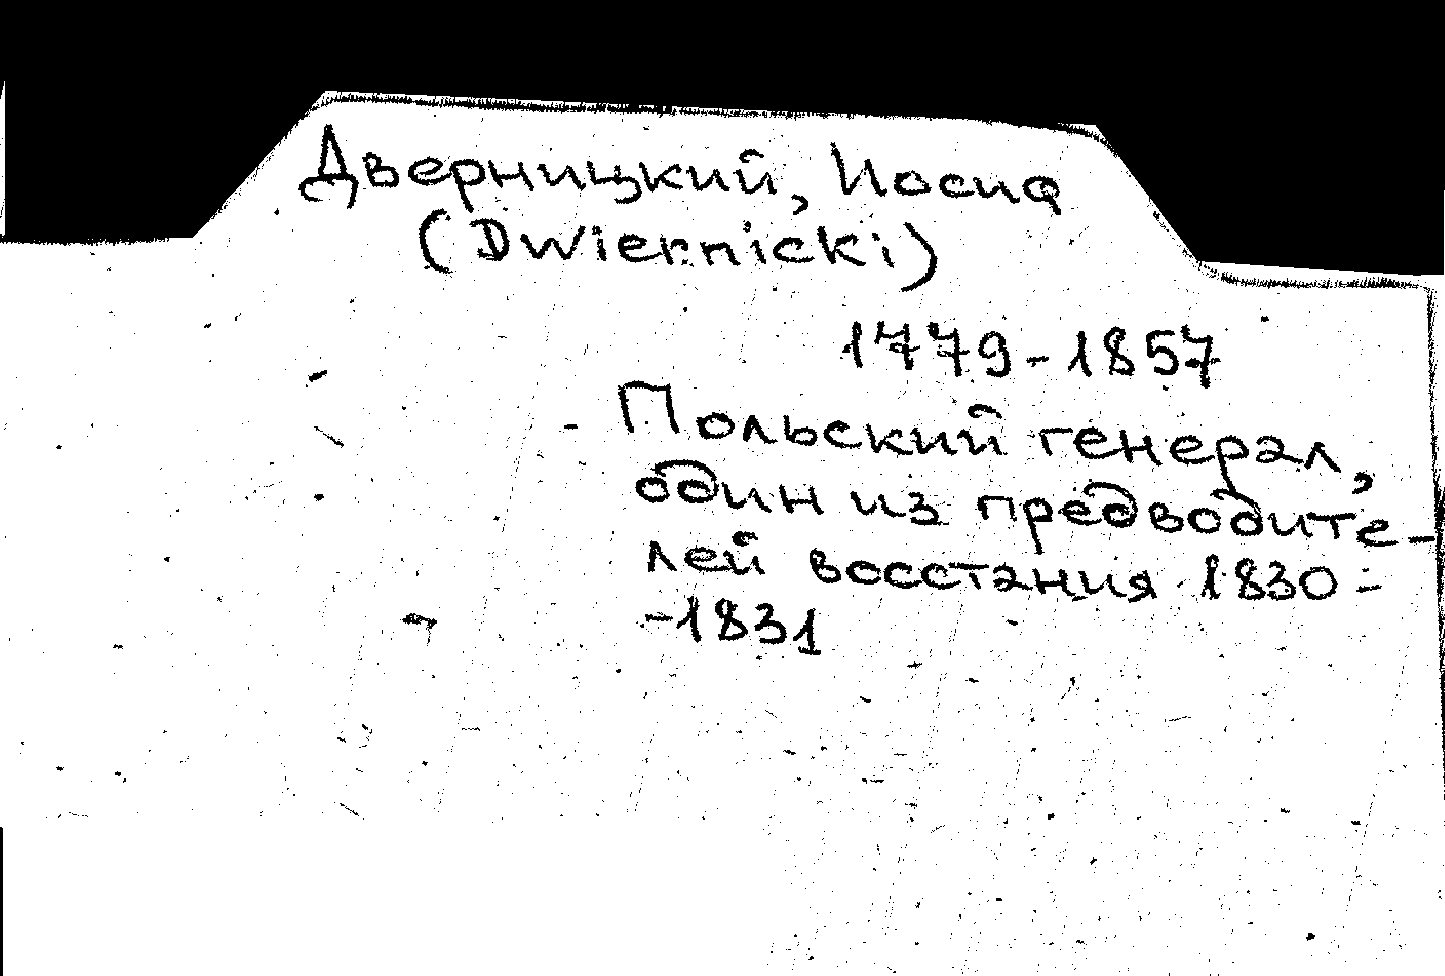 Дверницкий, Иосиф
(Dwiernicki)
1779-1857
Польский генерал,
один из предводите-
лей восстания 1830-
-1831